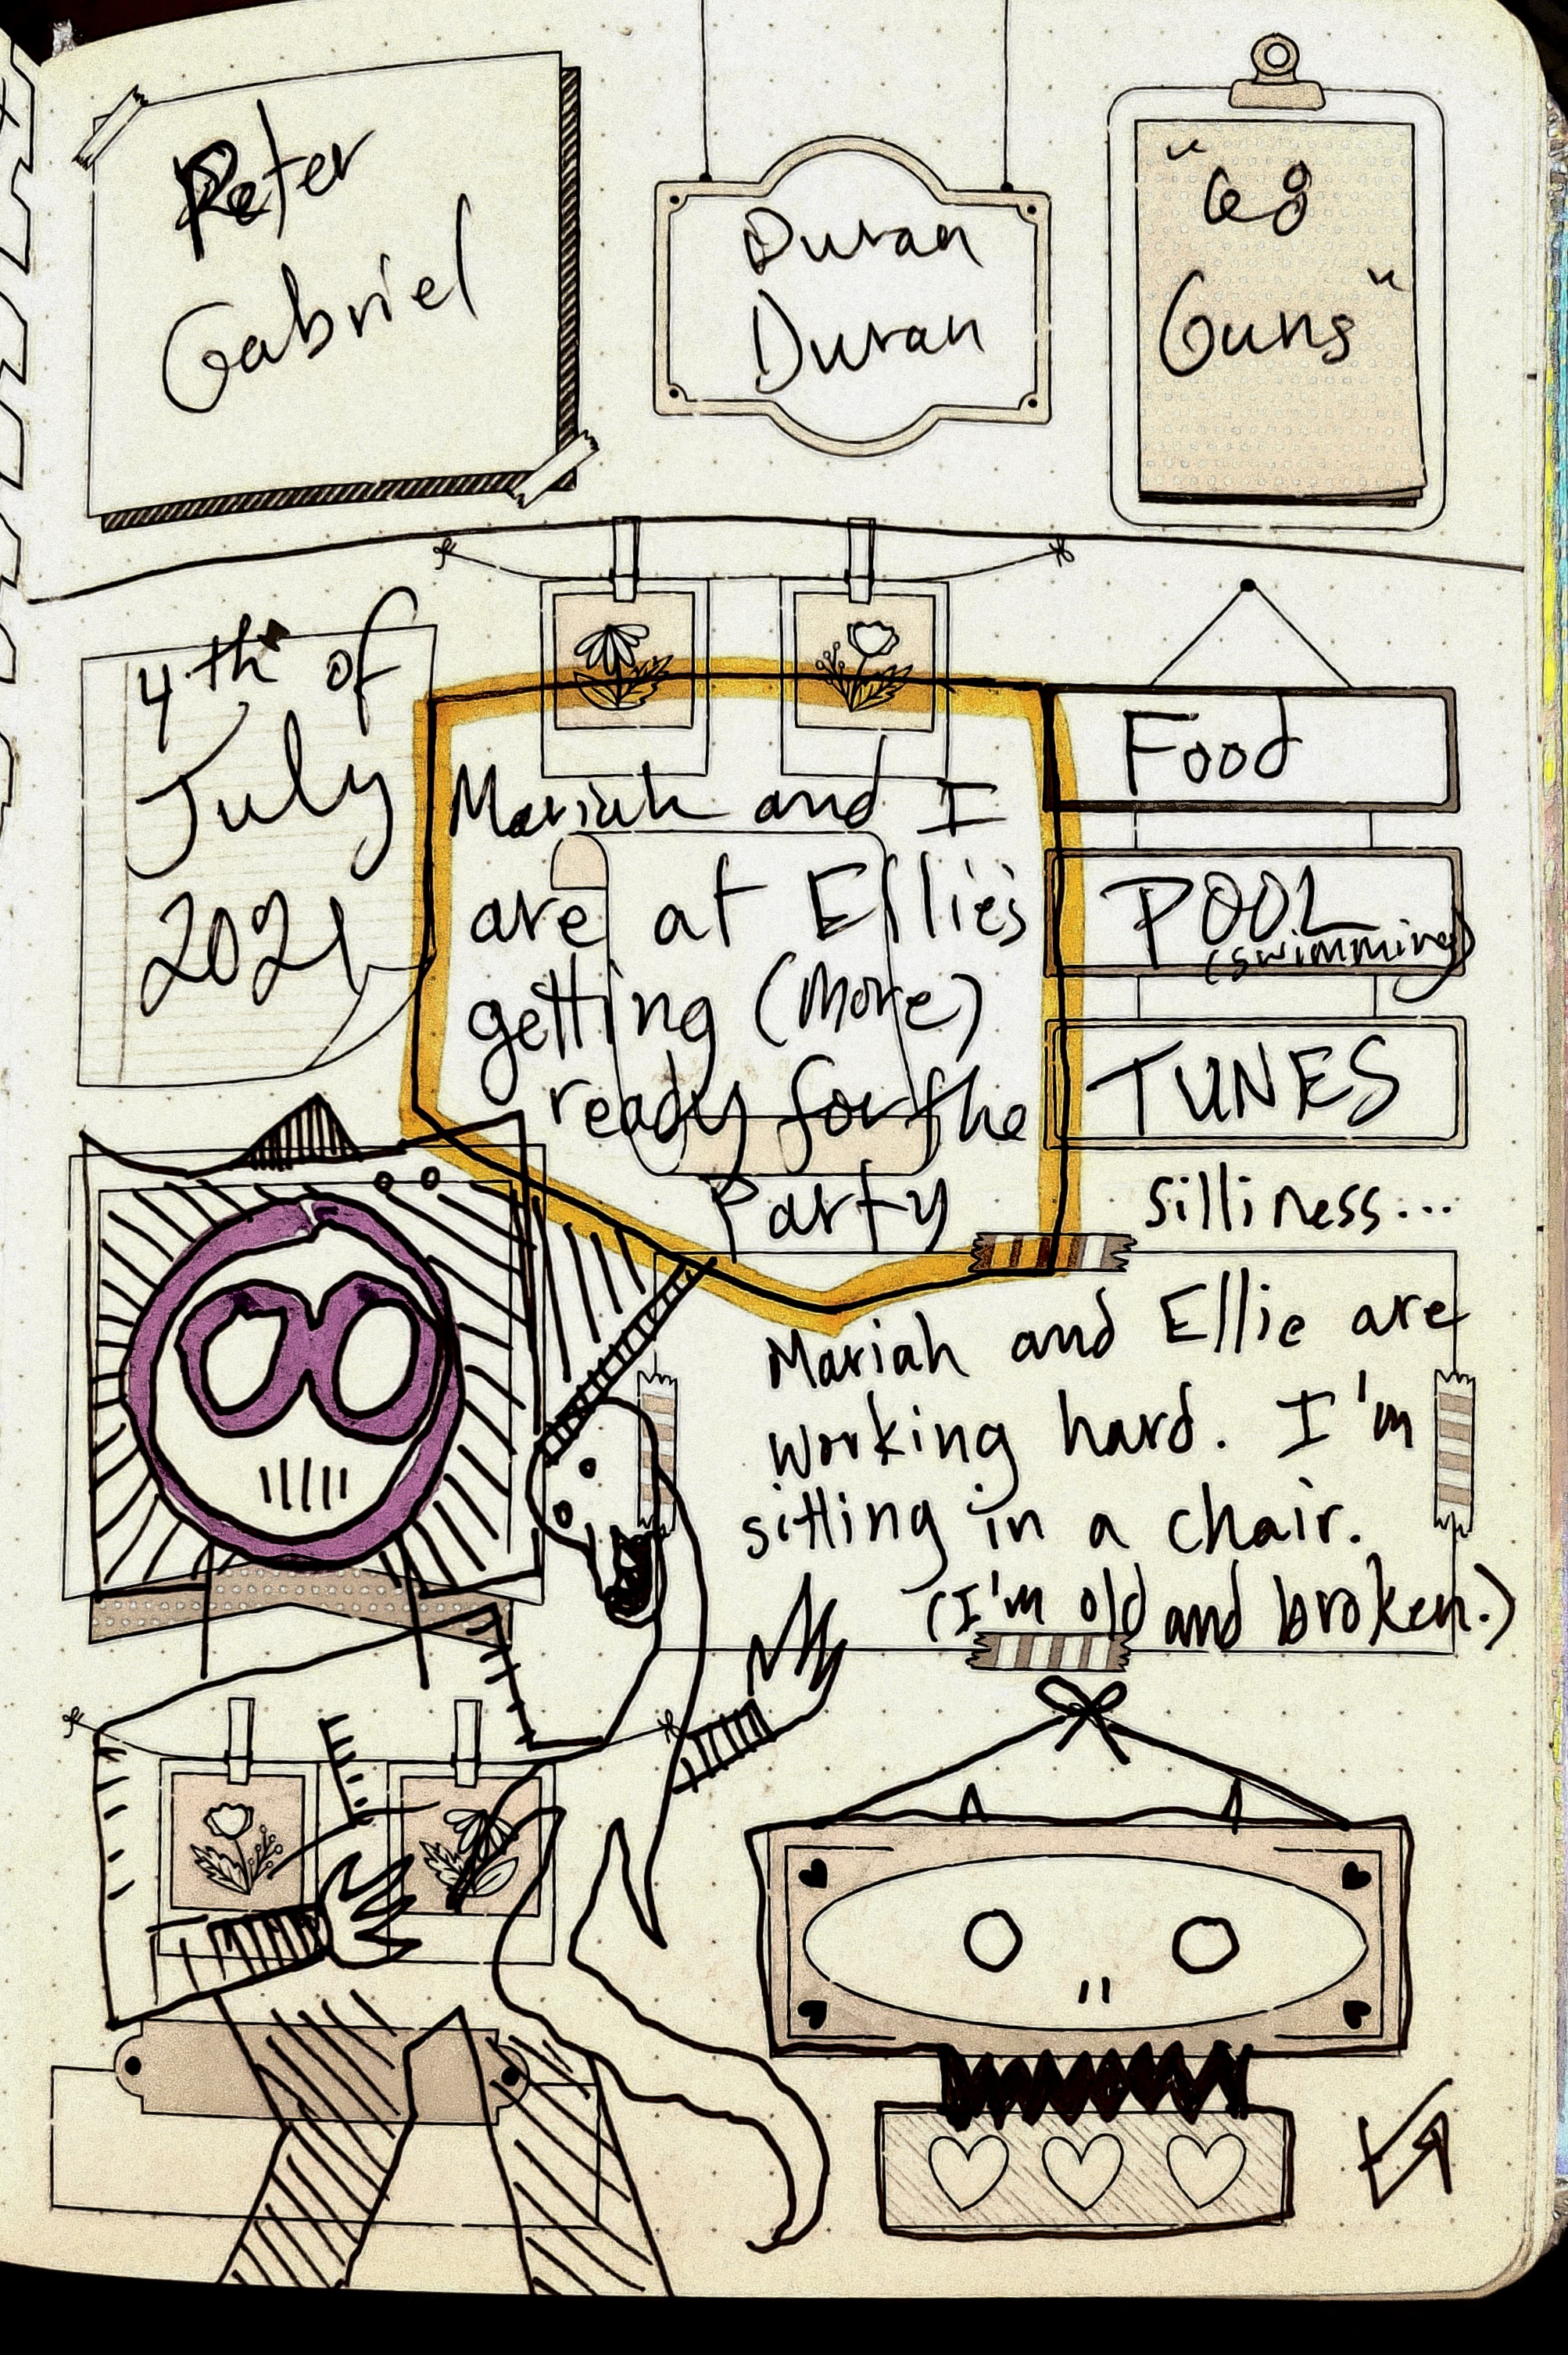 Peter
Gabriel
Duran
Duran
"68
Guns"
4th of
July
2021
Mariah and I
are at Ellie's
getting (more)
ready for the
Party
Food
POOL
(swimming)
TUNES
silliness...
Mariah and Ellie are
working hard. I'm
sitting in a chair.
(I'm old and broken.)